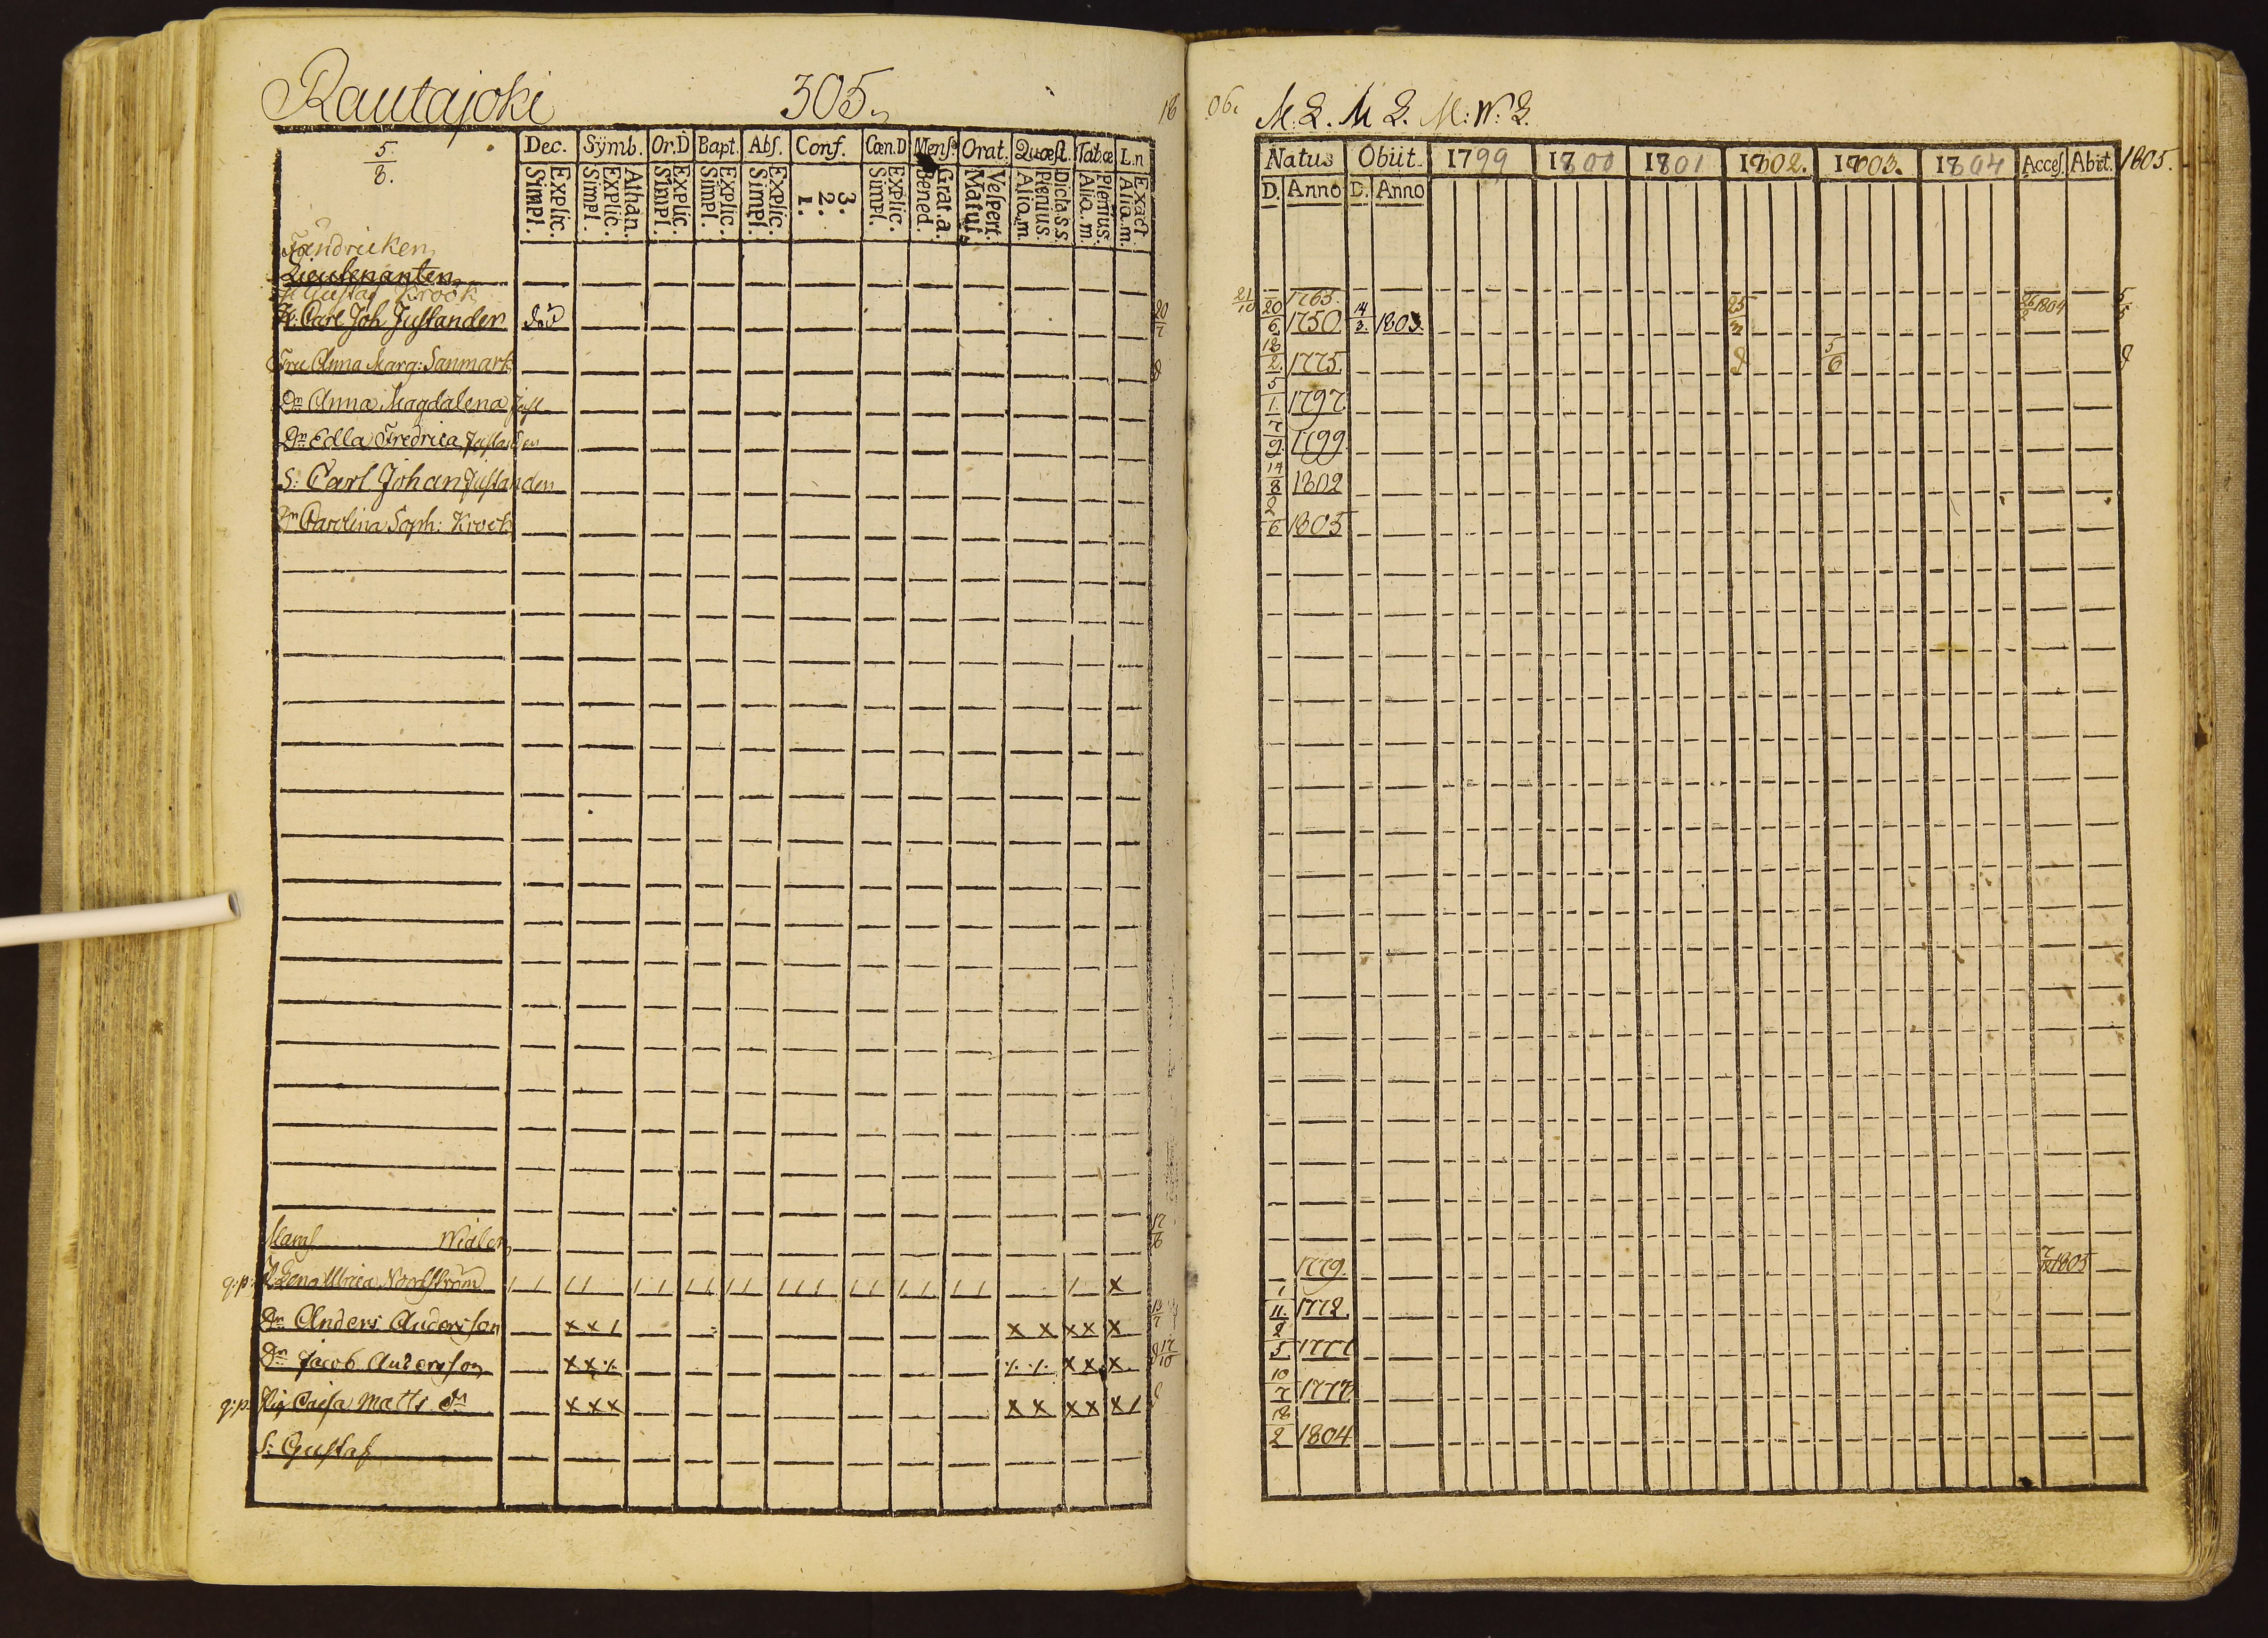 Rautajoki 305.
5/8.
Dec. Symb. Or.D Bapt. Abs. Conf. Cœn.D Mens. Orat. Quæst. Tab.œ L.n
Explic. Simpl. Athan. Explic. Simpl. Explic. Simpl. Explic. Simpl. Explic. Simpl. 3. 2. 1. Explic. Simpl. Grat.a. Bened. Vespert. Matut. Dicta.s.s. Plenius. Alia.m. Plenius. Alia.m. Exact. Alia.m.
Fändricken
Lieutenanten
Gustaf Krook
H: Carl Joh. Justander död
Fru Anna Marg: Sanmark
Dr Anna Magdalena Just
Dr Edla Fredrica Justander
S: Carl Johan Justander
Dr Carolina Soph: Krook
Mams Widlen
q:p: Lena Ulrica Nordström
Dr Anders Andersson
Dr Jacob Andersson
q:p: Pig Caisa Matts dr
S: Gustaf
18 06. M. L. M L. M: W: L.
Natus Obiit. 1799 1800 1801 1802. 1803. 1804 Acces. Abiit. 1805.
D. Anno D. Anno
21/10 1763. 26/2 1804 5/5
20/6 1750 14/3 1803. 25/3
18/2 1775. 5/6
5/1. 1797
7/9 1799
14/8 1802
2/6 1805
1779. 1805
1/11. 1772.
2/5 1777
10/7 1778
18/2 1804